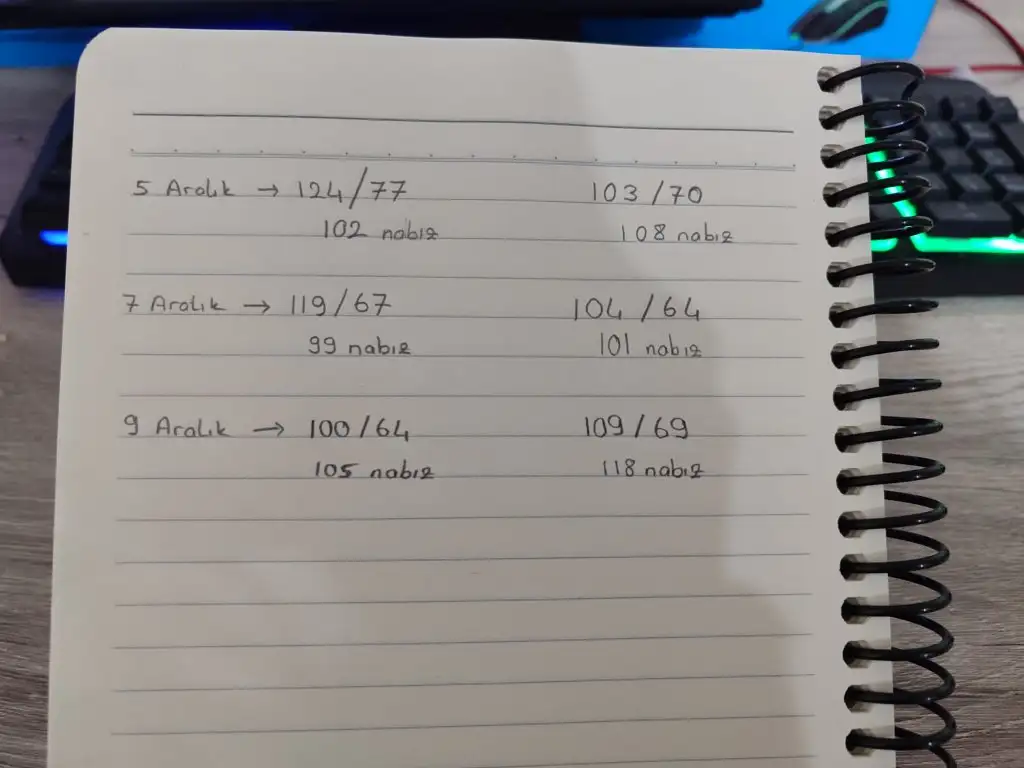 5 Aralık → 124/77 103/70
102 nabız 108 nabız
7 Aralık → 119/67 104/64
99 nabız 101 nabız
9 Aralık → 100/64 109/69
105 nabız 118 nabız